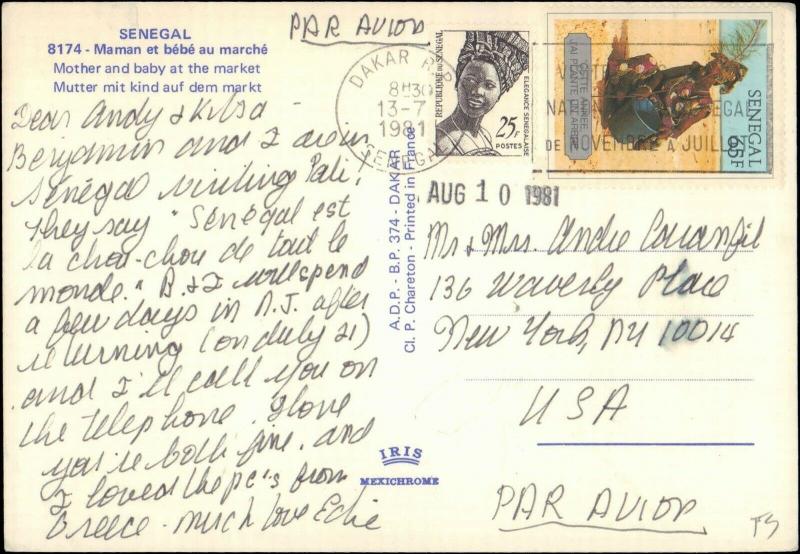 SENEGAL
8174 - Maman et bébé au marché
Mother and baby at the market
Mutter mit kind auf dem markt
PAR AVION
DAKAR R.P.
8H30
13-7
1981
SENEGAL
REPUBLIQUE DU SENEGAL
ELEGANCE SENEGALAISE
25F
POSTES
CETTE ANNEE,
J'AI PLANTE UN ARBRE
SENEGAL
65F
NATION
DE NOVEMBRE A JUILLET
AUG 10 1981
Dear Andy &
Benjamin and I are in
Sénégal visiting Pali,
They say "Sénégal est
la chou-chou de tout le
monde." B. & I will spend
a few days in N.J. after
returning (on July 21)
and I'll call you on
the telephone. I love
you're both fine, and
I loved the pc's from
Greece - much love Edie
A.D.P. - B.P. 374 - DAKAR
Cl. P. Chareton - Printed in France
IRIS
MEXICHROME
Mr & Mrs. Andre
136 Waverly Place
New York, NY 10014
USA
PAR AVION